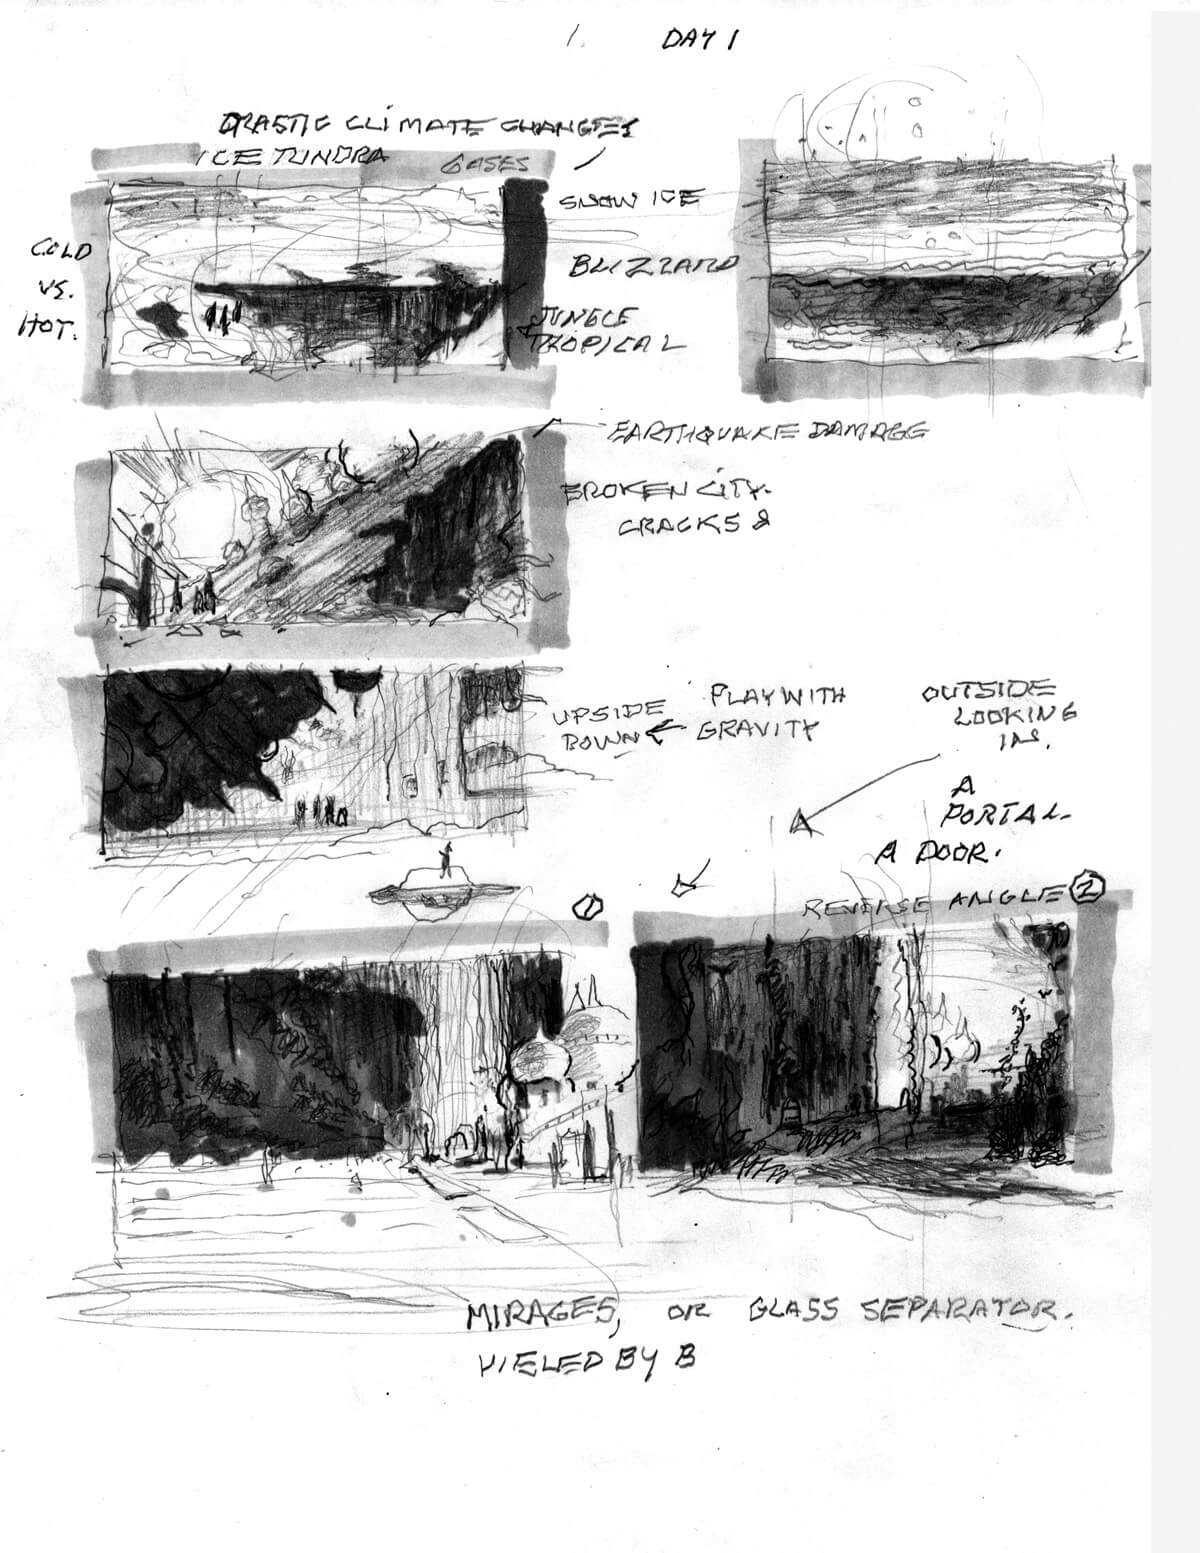 1. DAY 1
DRASTIC CLIMATE CHANGES
ICE TUNDRA
GASES
SNOW ICE
COLD
VS.
HOT.
BLIZZARD
JUNGLE
TROPICAL
EARTHQUAKE DAMAGE
BROKEN CITY.
CRACKS &
UPSIDE
DOWN
PLAY WITH
GRAVITY
OUTSIDE
LOOKING
IN.
A
PORTAL.
A DOOR.
1
REVERSE ANGLE 2
MIRAGES, OR GLASS SEPARATOR.
VIELED BY B